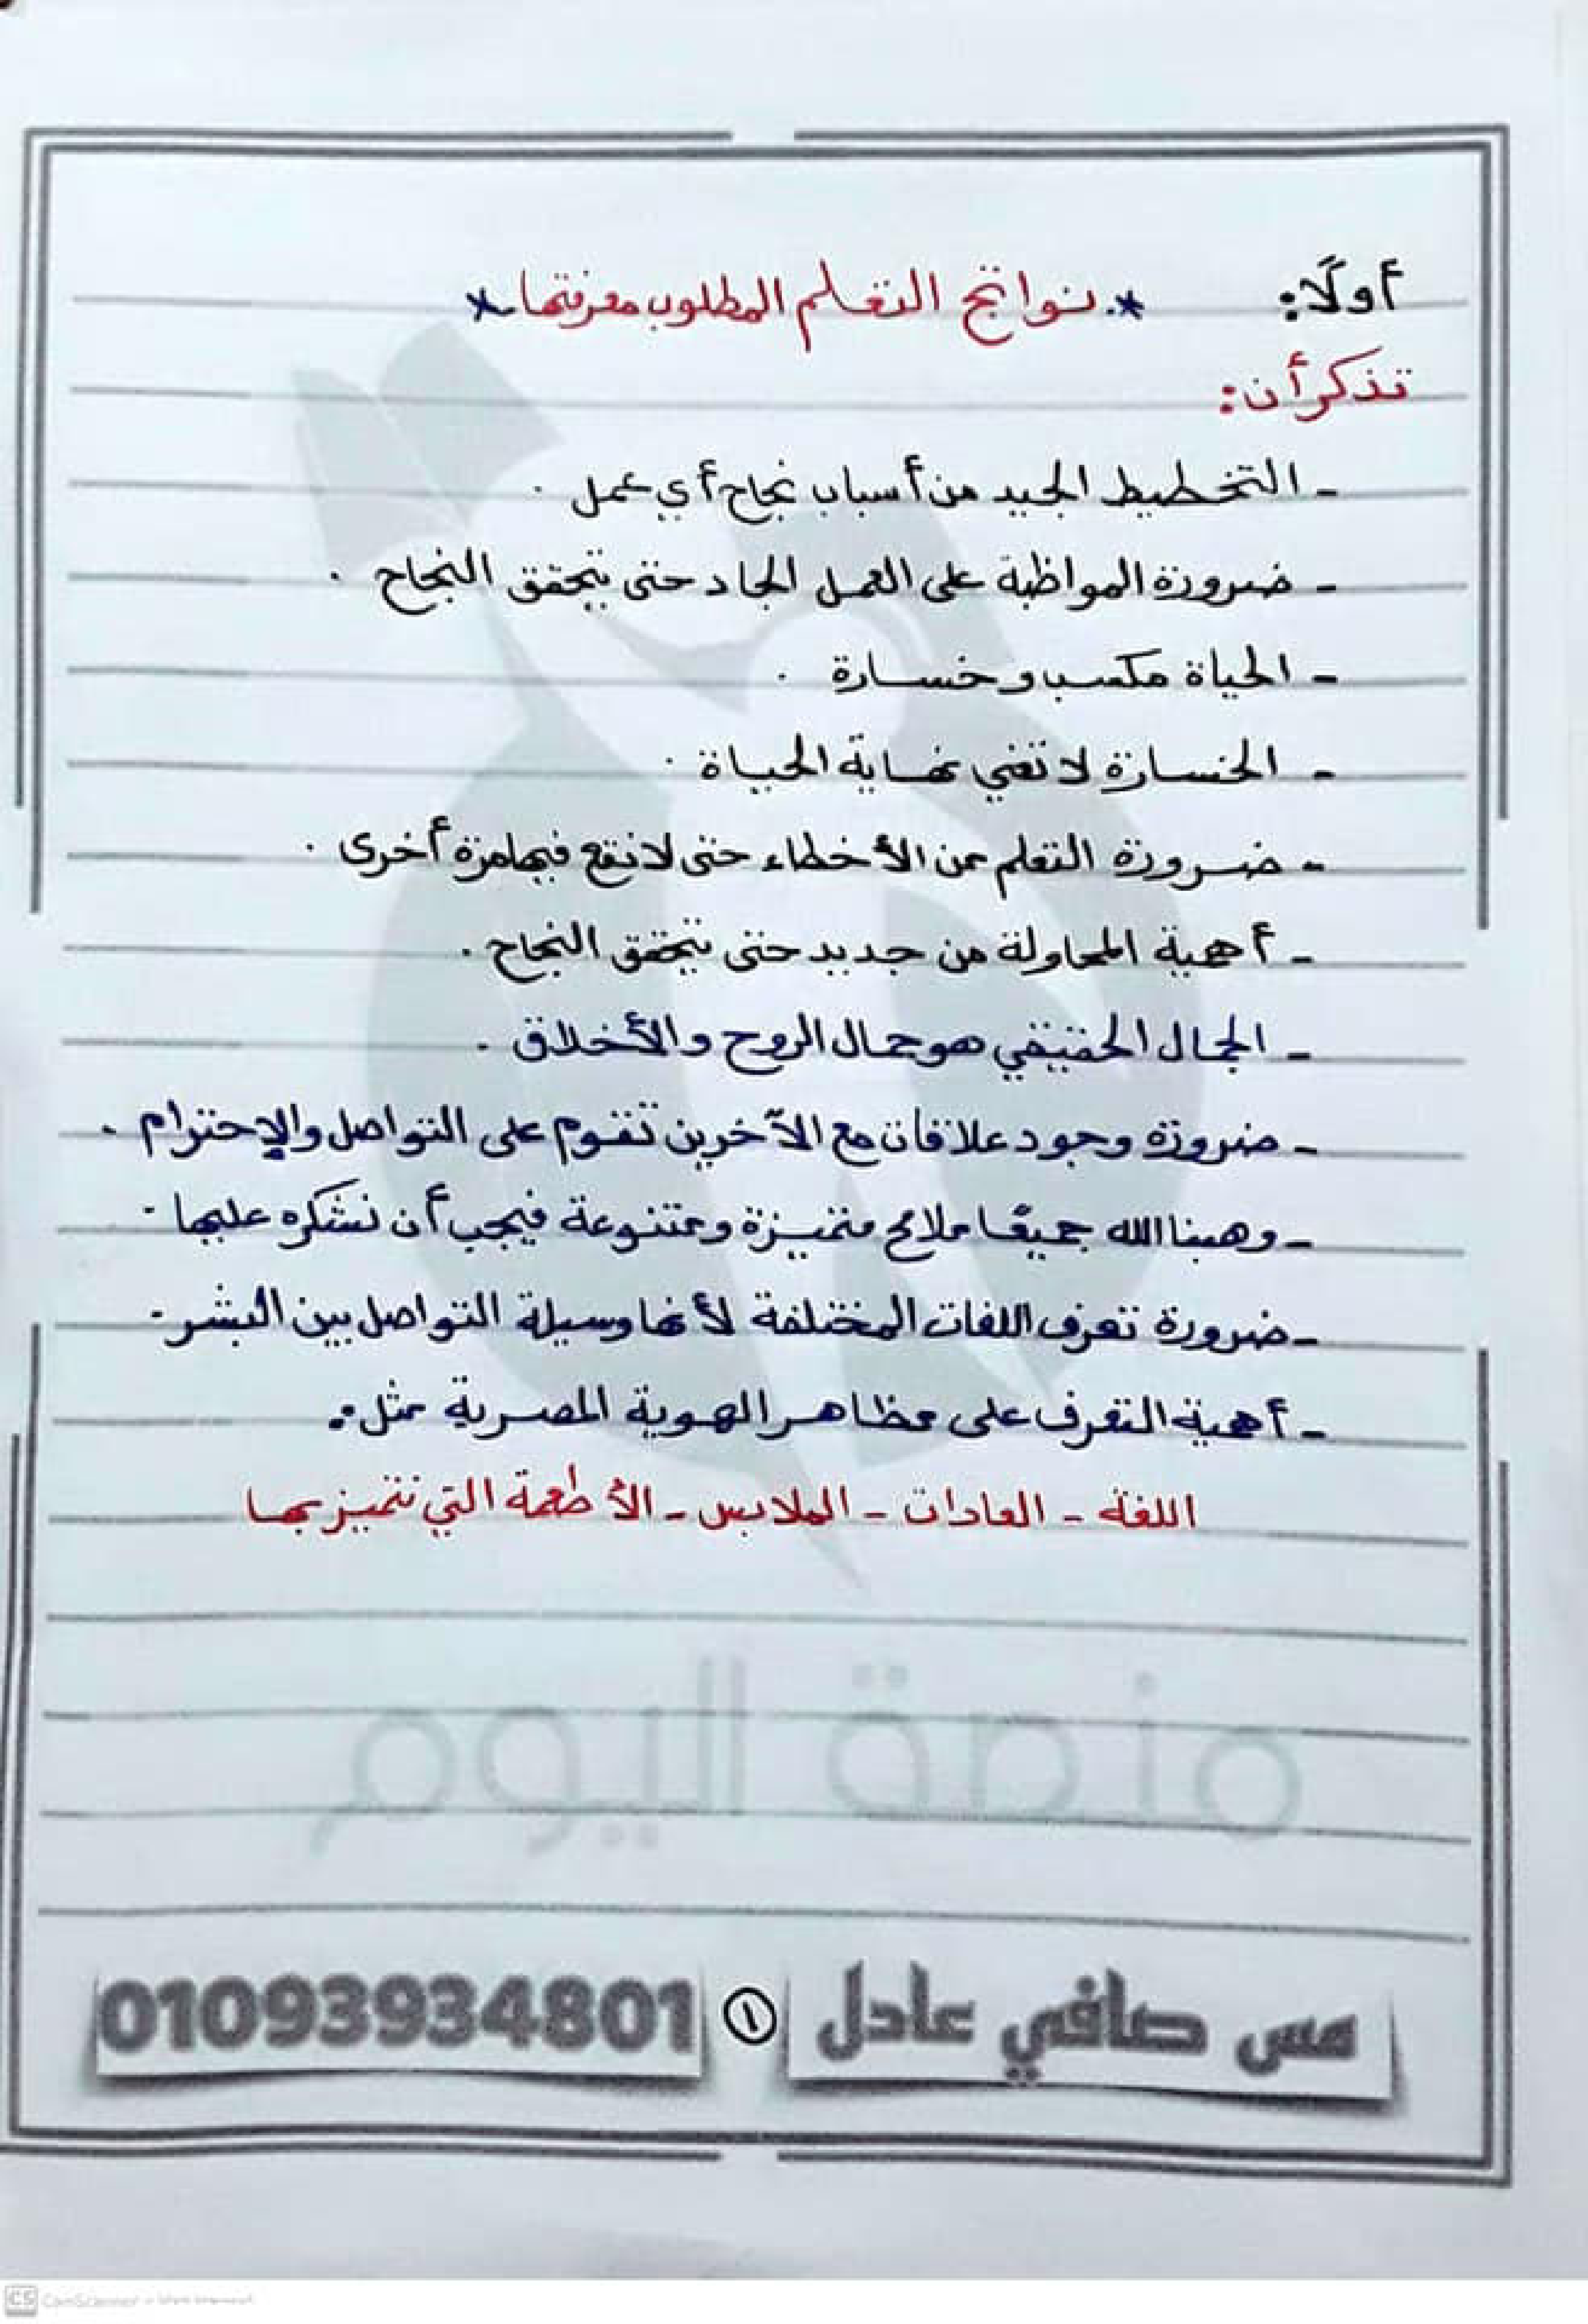 أولًا: *. نواتج التعلم المطلوب معرفتها *
تذكر أن:
- التخطيط الجيد من أسباب نجاح أي عمل .
- ضرورة المواظبة على العمل الجاد حتى يتحقق النجاح .
- الحياة مكسب و خسارة .
- الخسارة لا تعني نهاية الحياة .
- ضرورة التعلم من الأخطاء حتى لا نقع فيها مرة أخرى .
- أهمية المحاولة من جديد حتى يتحقق النجاح .
- الجمال الحقيقي هو جمال الروح والأخلاق .
- ضرورة وجود علاقات مع الآخرين تقوم على التواصل والإحترام .
- وهبنا الله جميعًا ملامح متميزة ومتنوعة فيجب أن نشكره عليها .
- ضرورة تعرف اللغات المختلفة لأنها وسيلة التواصل بين البشر .
- أهمية التعرف على مظاهر الهوية المصرية مثل:
اللغة - العادات - الملابس - الأطعمة التي نتميز بها
منصة اليوم
مس صافي عادل ١ 01093934801
CS CamScanner